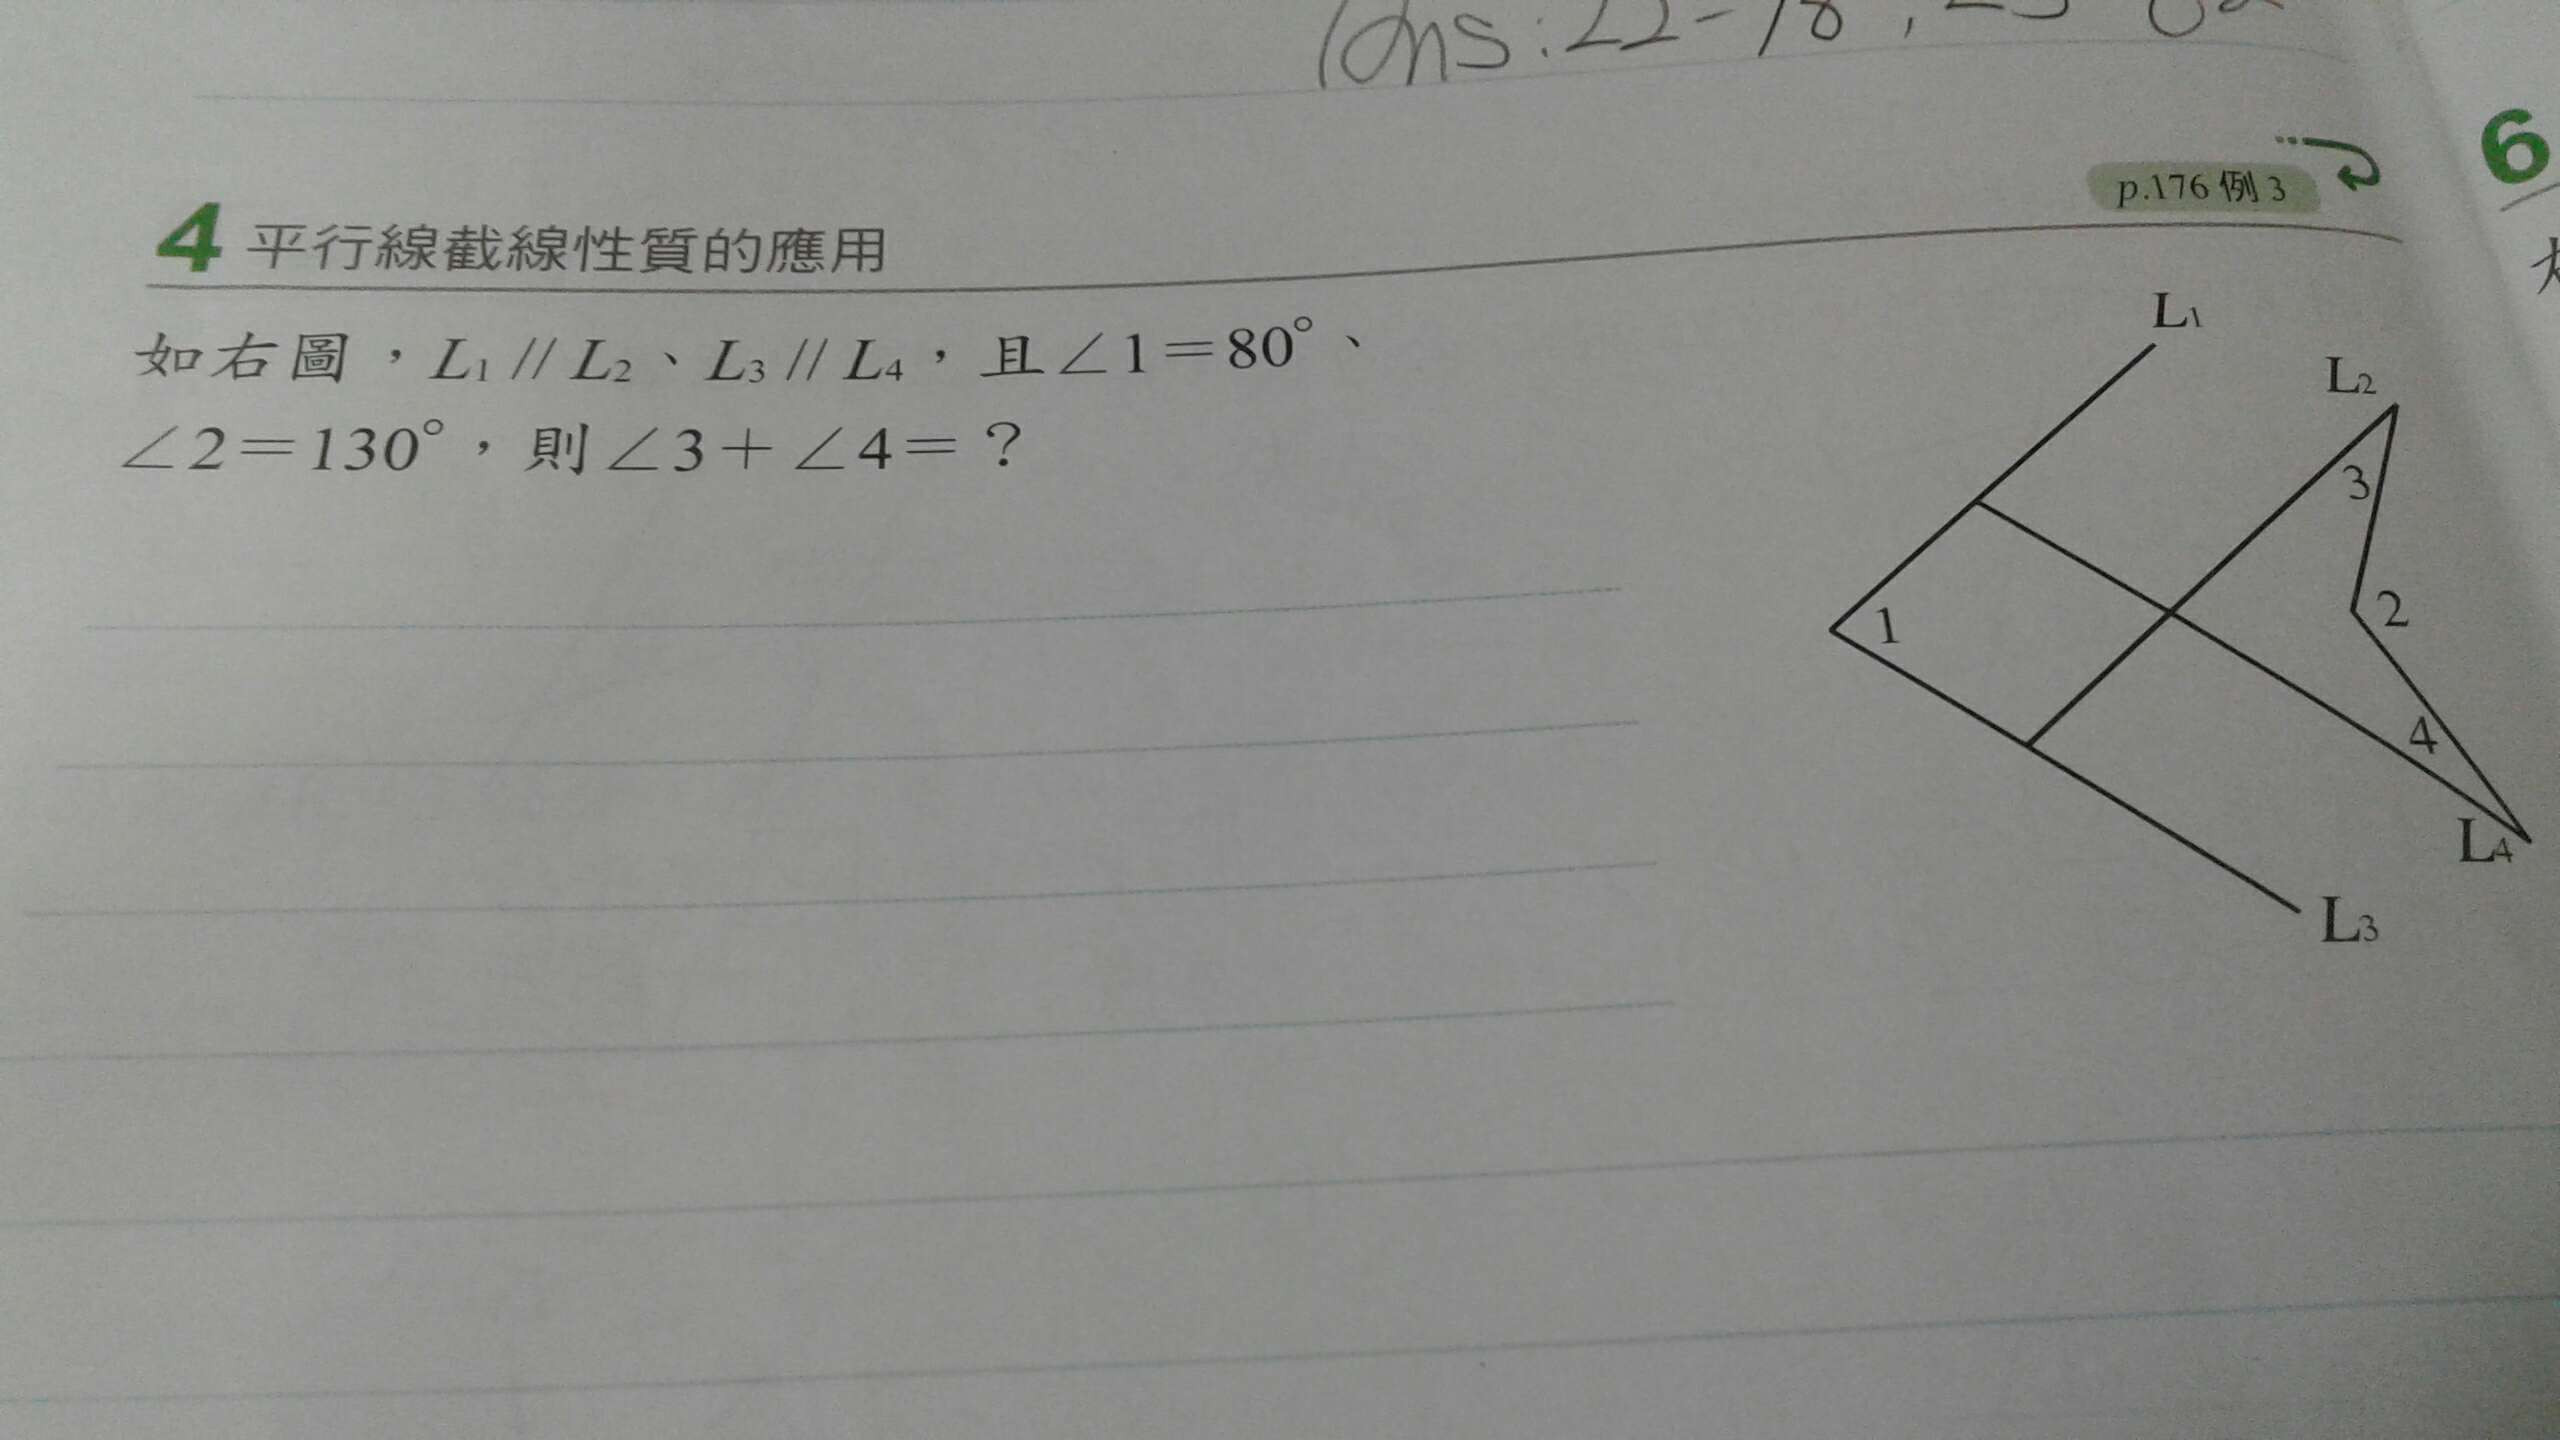 Ans:∠2=
p.176 例 3
6
4 平行線截線性質的應用
如右圖，L1 // L2、L3 // L4，且∠1＝80°、
∠2＝130°，則∠3＋∠4＝？
L1
L2
3
1
2
4
L4
L3